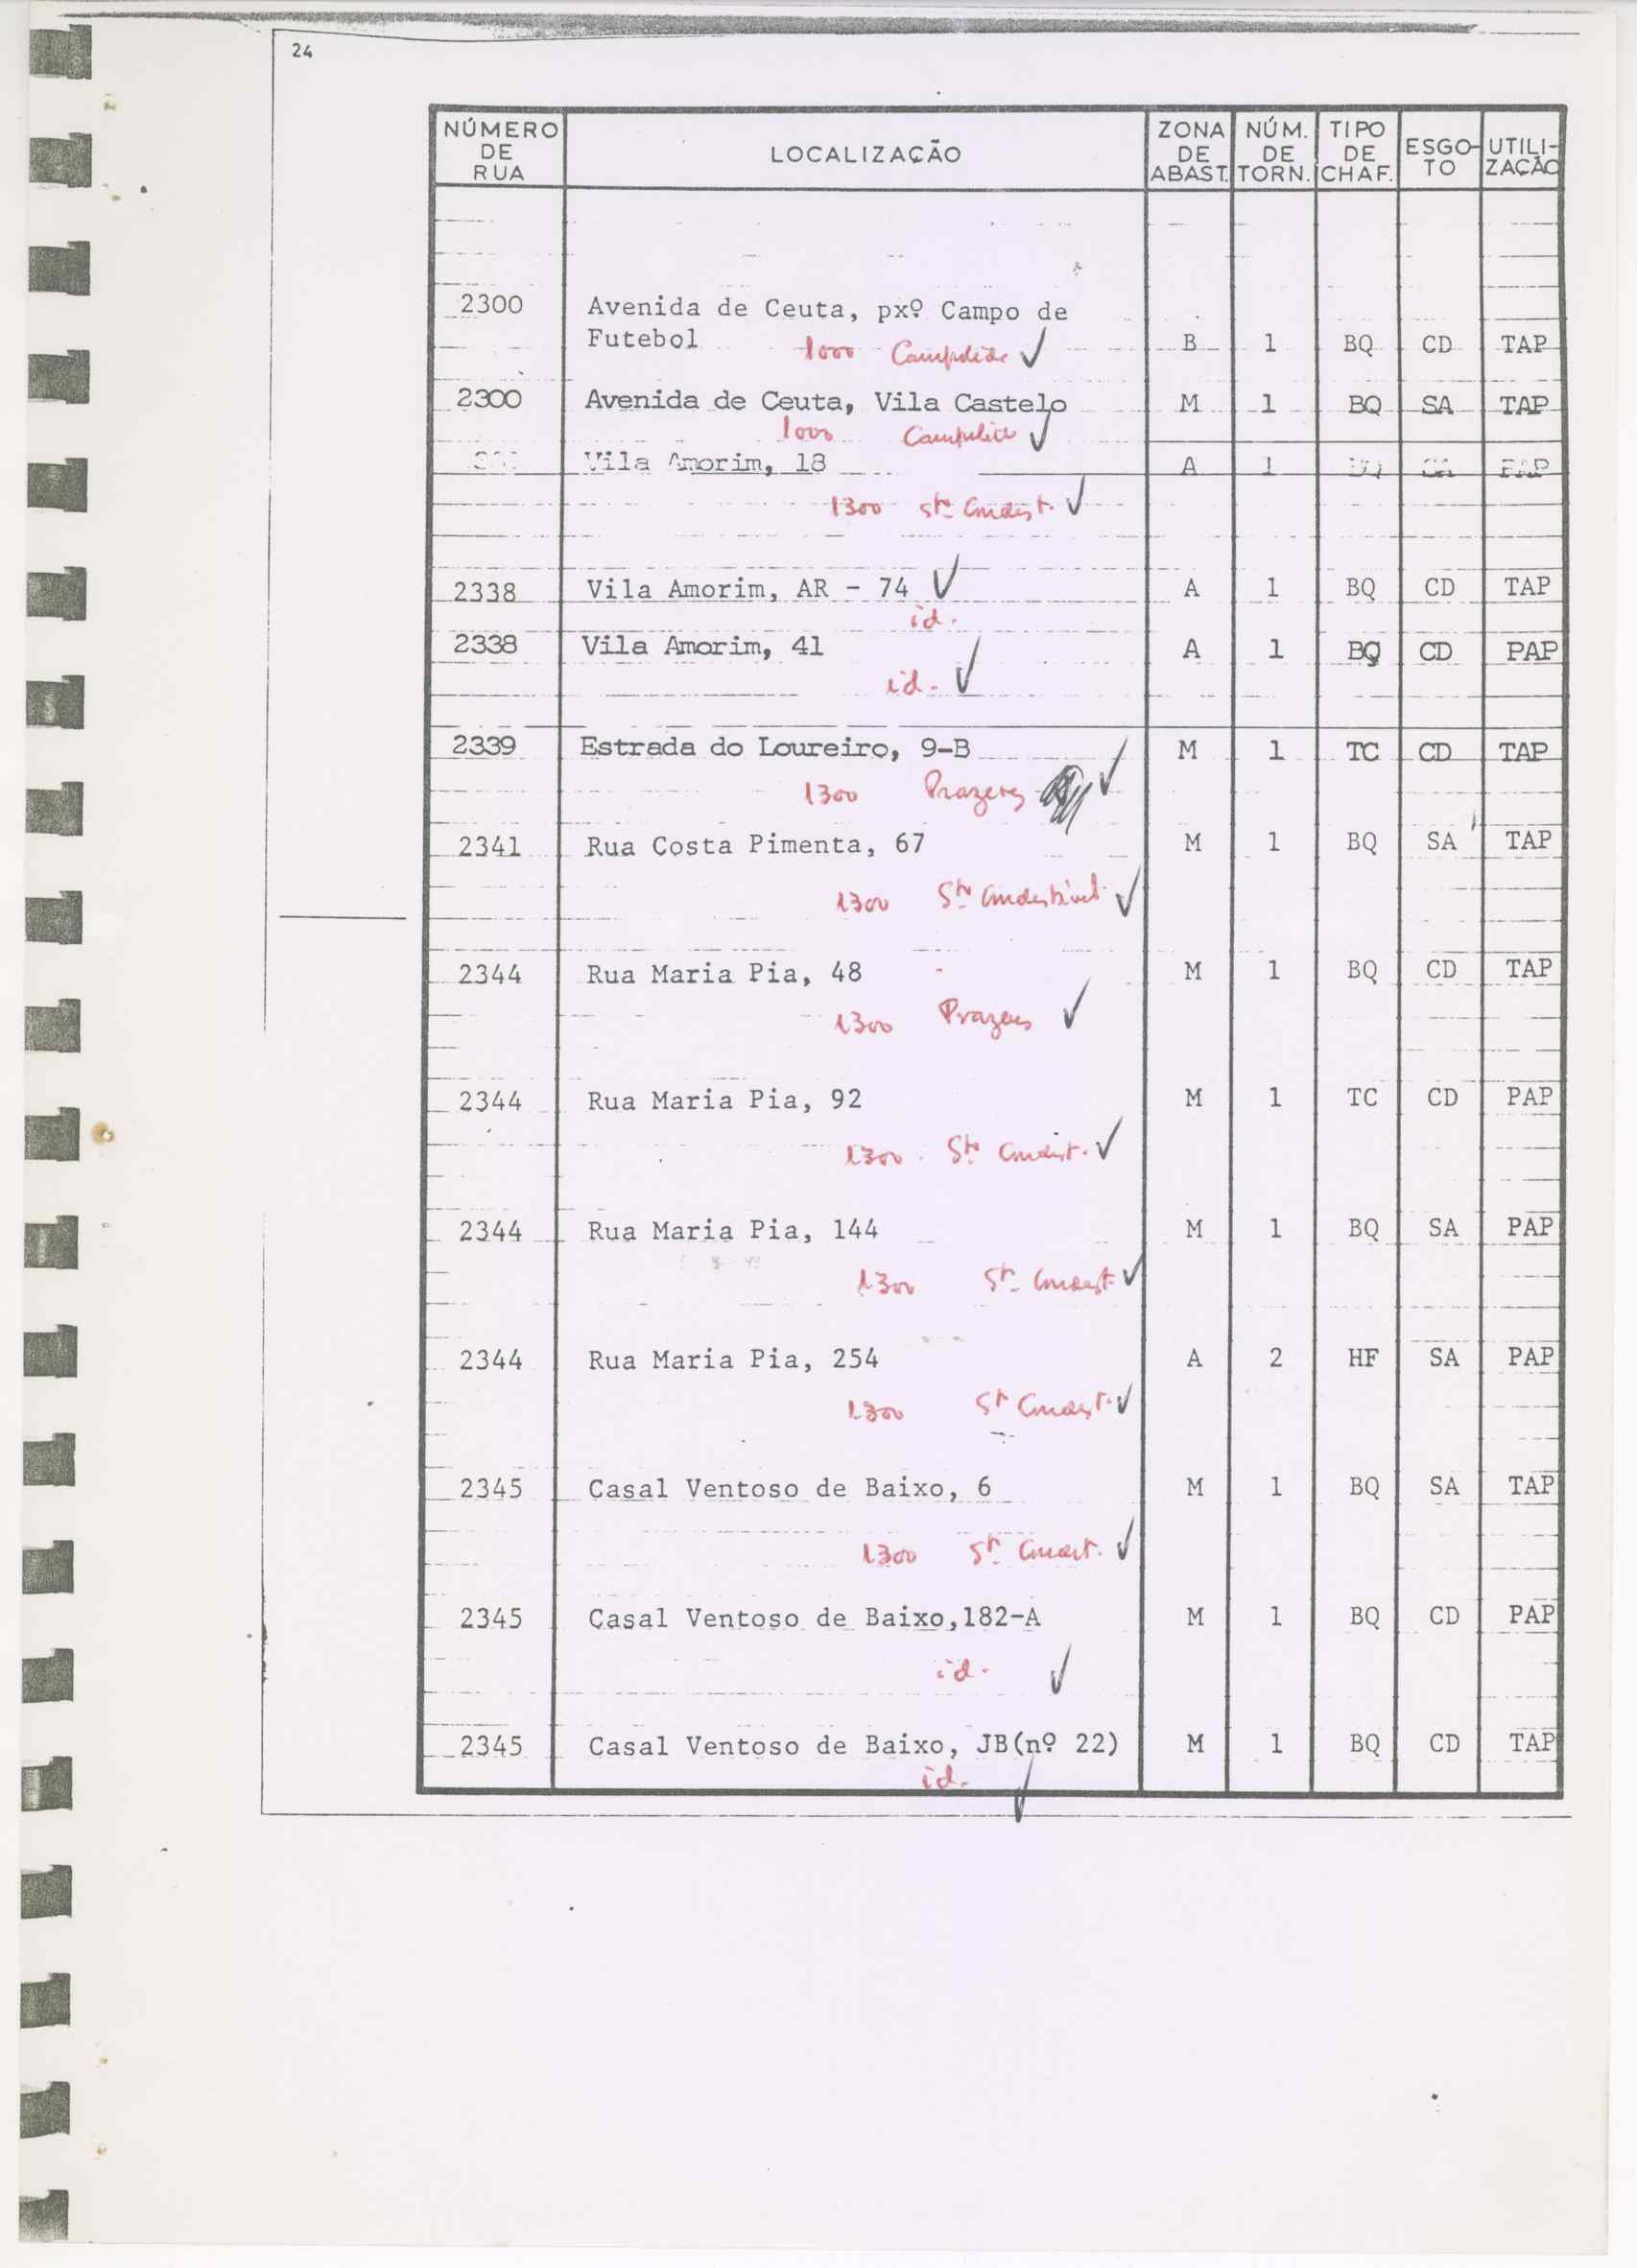 24
NÚMERO DE RUA LOCALIZAÇÃO ZONA DE ABAST. NÚM. DE TORN. TIPO DE CHAF. ESGO-TO UTILI-ZAÇÃO
2300 Avenida de Ceuta, pxº Campo de
Futebol B 1 BQ CD TAP
1000 Campolide ✓
2300 Avenida de Ceuta, Vila Castelo M 1 BQ SA TAP
1000 Campolide ✓
Vila Amorim, 18 A 1 PAP
1300 Stº Condest. ✓
2338 Vila Amorim, AR - 74 ✓ A 1 BQ CD TAP
id.
2338 Vila Amorim, 41 A 1 BQ CD PAP
id. ✓
2339 Estrada do Loureiro, 9-B M 1 TC CD TAP
1300 Prazeres ✓
2341 Rua Costa Pimenta, 67 M 1 BQ SA TAP
1300 Stº Condestável ✓
2344 Rua Maria Pia, 48 M 1 BQ CD TAP
1300 Prazeres ✓
2344 Rua Maria Pia, 92 M 1 TC CD PAP
1300 Stº Condest. ✓
2344 Rua Maria Pia, 144 M 1 BQ SA PAP
1300 Stº Condest. ✓
2344 Rua Maria Pia, 254 A 2 HF SA PAP
1300 Stº Condest. ✓
2345 Casal Ventoso de Baixo, 6 M 1 BQ SA TAP
1300 Stº Condest. ✓
2345 Casal Ventoso de Baixo,182-A M 1 BQ CD PAP
id. ✓
2345 Casal Ventoso de Baixo, JB(nº 22) M 1 BQ CD TAP
id. ✓